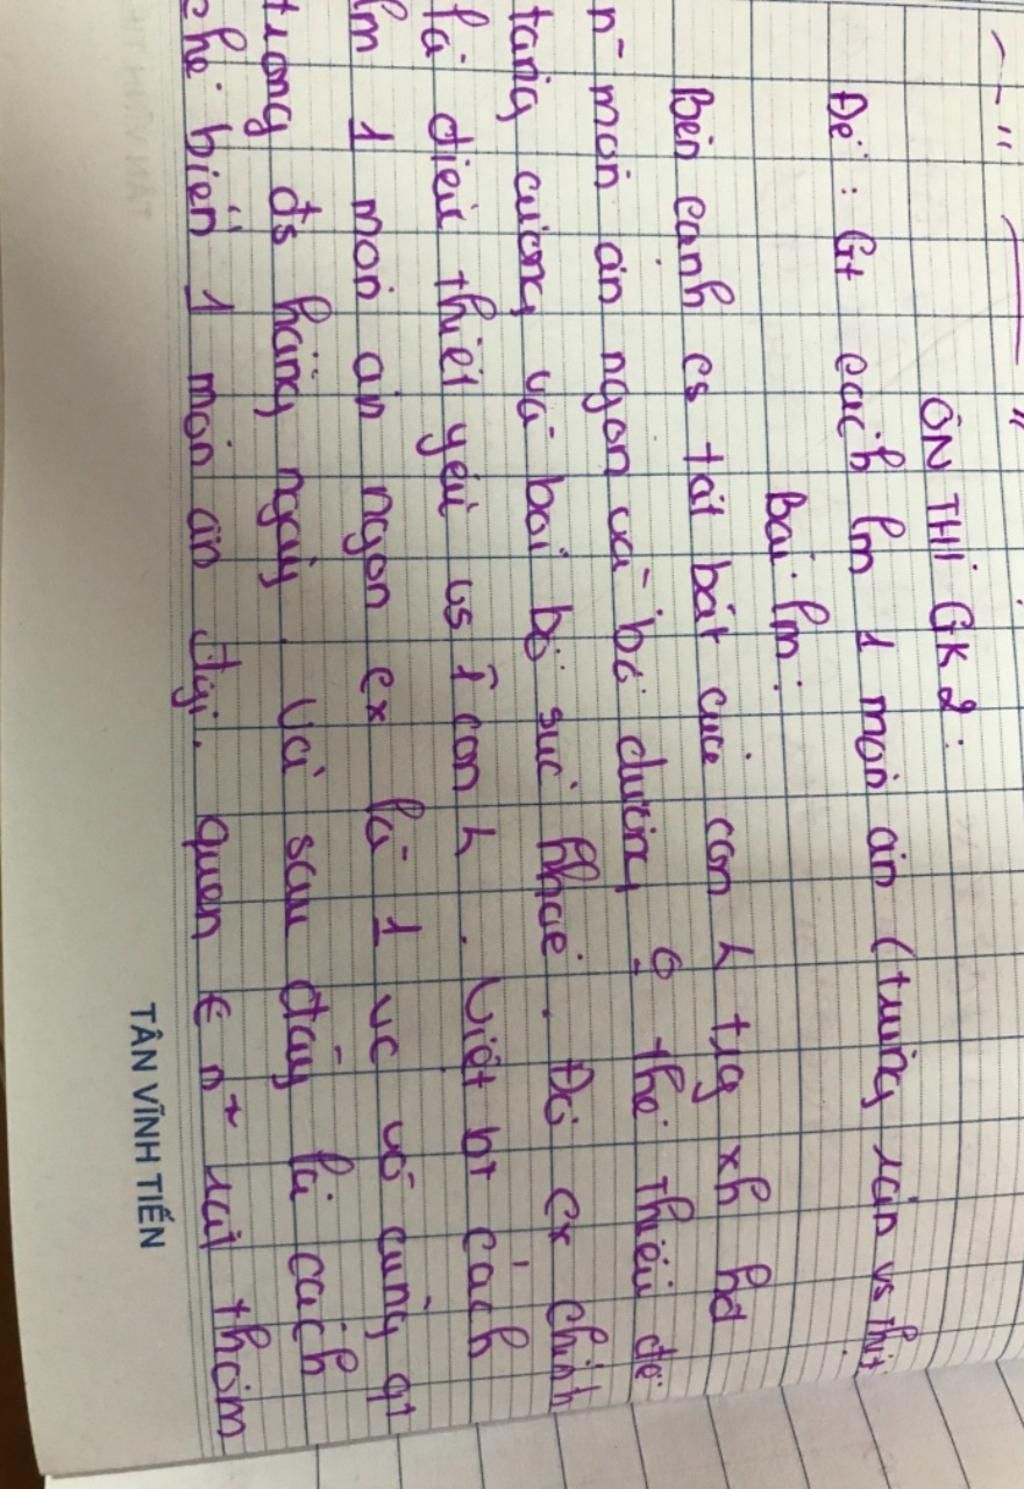 ÔN THI GK2:
Đề: Gt cách lm 1 món ăn (trứng rán vs thịt
Bài lm:
Bên cạnh cs tất bật của con h trg xh hđ
n~ món ăn ngon và bổ dưỡng ko thể thiếu để
tăng cường và bồi bổ sức khỏe. Đó cx chính
là điều thiết yếu vs con h. Việt bt cách
lm 1 món ăn ngon cx là 1 vc vô cùng qt
trong đs hằng ngày. Và sau đây là cách
chế biến 1 món ăn quen € n~ lại thơm
TÂN VĨNH TIẾN